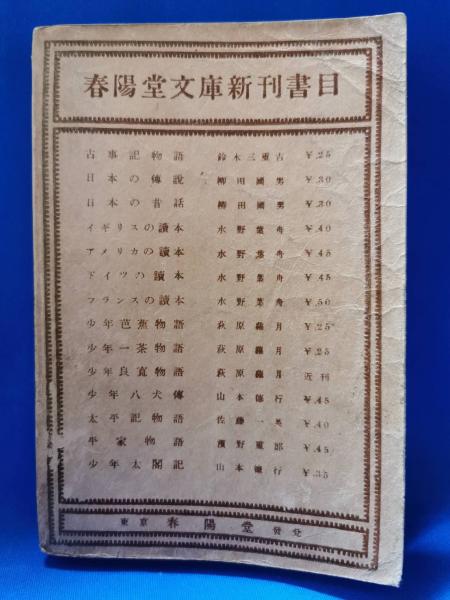 春陽堂文庫新刊書目
古事記物語 鈴木三重吉 ¥.25
日本の傳說 柳田國男 ¥.30
日本の昔話 柳田國男 ¥.30
イギリスの讀本 水野葉舟 ¥.40
アメリカの讀本 水野葉舟 ¥.45
ドイツの讀本 水野葉舟 ¥.45
フランスの讀本 水野葉舟 ¥.50
少年芭蕉物語 萩原蘿月 ¥.25
少年一茶物語 萩原蘿月 ¥.25
少年良寬物語 萩原蘿月 近刊
少年八犬傳 山本德行 ¥.45
太平記物語 佐藤一英 ¥.40
平家物語 濱野重郎 ¥.45
少年太閤記 山本德行 ¥.35
東京 春陽堂 發兌